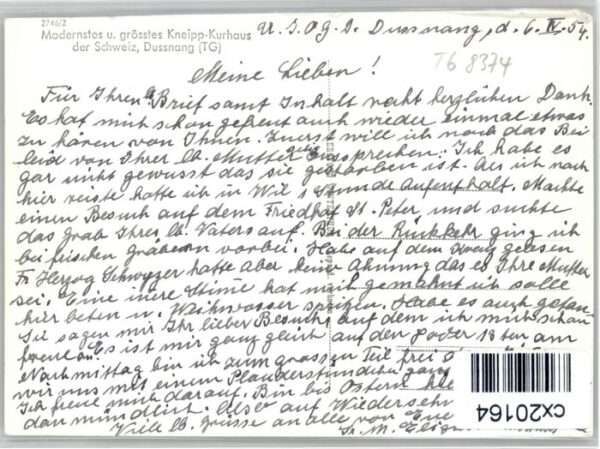 2746/2
Modernstes u. grösstes Kneipp-Kurhaus
der Schweiz, Dussnang (TG)
Dussnang, d. 6. IV. 54.
TG 8374
Meine Lieben!
Für Ihren lb. Brief samt Inhalt recht herzlichen Dank.
Es hat mich schon gefreut auch wieder einmal etwas
zu hören von Ihnen. Zuerst will ich noch das Bei
leid von Ihrer lb. Mutter aussprechen. Ich habe es
gar nicht gewusst das sie gestorben ist. Als ich nach
hier reiste hatte ich in Wil 1 Stunde Aufenthalt. Machte
einen Besuch auf dem Friedhof St. Peter, und suchte
das Grab Ihres lb. Vaters auf. Bei der Rückkehr ging ich
bei frischen Gräbern vorbei. Habe auf dem Kreuz gelesen
Fr. Herzog Schwyzer hatte aber keine Ahnung das es Ihre Mutter
sei. Eine inere Stime hat mich gemahnt ich solle
hier beten u. Weihwasser spritzen. Habe es auch getan.
Sie sagen mir Ihr lieber Besuch auf dem ich mich schon
freue an. Es ist mir ganz gleich auf den 17 oder 18 ten, am
Nachmittag bin ich zum grossen Teil frei
wir uns mit einem Plauderstündchen
Ich freue mich darauf. Bin bis Ostern
dan mündlich. Also auf Wiedersehn
Viele lb. Grüsse an alle von
Sr. M.
cx20164